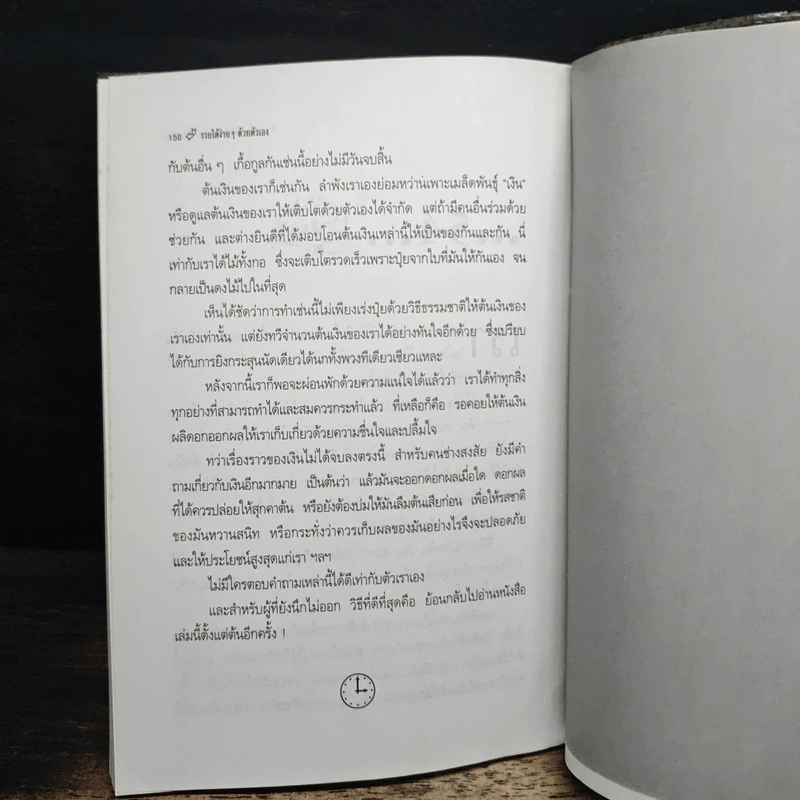 180 รวยได้ง่ายๆ ด้วยตัวเอง
กับต้นอื่น ๆ เกื้อกูลกันเช่นนี้อย่างไม่มีวันจบสิ้น
ต้นเงินของเราก็เช่นกัน ลำพังเราเองย่อมหว่านเพาะเมล็ดพันธุ์ "เงิน"
หรือดูแลต้นเงินของเราให้เติบโตด้วยตัวเองได้จำกัด แต่ถ้ามีคนอื่นร่วมด้วย
ช่วยกัน และต่างยินดีที่ได้มอบโอนต้นเงินเหล่านี้ให้เป็นของกันและกัน นี่
เท่ากับเราได้ไม้ทั้งกอ ซึ่งจะเติบโตรวดเร็วเพราะปุ๋ยจากใบที่มันให้กันเอง จน
กลายเป็นดงไม้ไปในที่สุด
เห็นได้ชัดว่าการทำเช่นนี้ไม่เพียงเร่งปุ๋ยด้วยวิธีธรรมชาติให้ต้นเงินของ
เราเองเท่านั้น แต่ยังทวีจำนวนต้นเงินของเราได้อย่างทันใจอีกด้วย ซึ่งเปรียบ
ได้กับการยิงกระสุนนัดเดียวได้นกทั้งพวงทีเดียวเชียวแหละ
หลังจากนี้เราก็พอจะผ่อนพักด้วยความแน่ใจได้แล้วว่า เราได้ทำทุกสิ่ง
ทุกอย่างที่สามารถทำได้และสมควรกระทำแล้ว ที่เหลือก็คือ รอคอยให้ต้นเงิน
ผลิดอกออกผลให้เราเก็บเกี่ยวด้วยความชื่นใจและปลื้มใจ
ทว่าเรื่องราวของเงินไม่ได้จบลงตรงนี้ สำหรับคนช่างสงสัย ยังมีคำ
ถามเกี่ยวกับเงินอีกมากมาย เป็นต้นว่า แล้วมันจะออกดอกผลเมื่อใด ดอกผล
ที่ได้ควรปล่อยให้สุกคาต้น หรือยังต้องบ่มให้มันลืมต้นเสียก่อน เพื่อให้รสชาติ
ของมันหวานสนิท หรือกระทั่งว่าควรเก็บผลของมันอย่างไรจึงจะปลอดภัย
และให้ประโยชน์สูงสุดแก่เรา ฯลฯ
ไม่มีใครตอบคำถามเหล่านี้ได้ดีเท่ากับตัวเราเอง
และสำหรับผู้ที่ยังนึกไม่ออก วิธีที่ดีที่สุดคือ ย้อนกลับไปอ่านหนังสือ
เล่มนี้ตั้งแต่ต้นอีกครั้ง !